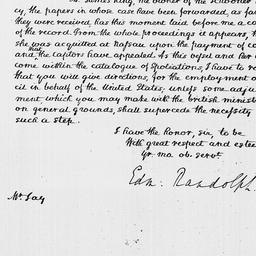 Mr. James King, the owner of the schooner
cy, the papers in whose case have been forwarded, as fa
they were received, has this moment laid before me a co
of the record. From the whole proceedings it appears, th
she was acquitted at Nassau upon the payment of co
and that the captors have appealed. As this vessel and her c
come within the catalogue of spoliations, I have to re
that you will give directions, for the employment o
cil in behalf of the United States; unless some adju
ment, which you may make with the british minist
on general grounds, shall supercede the necessity
such a step.
I have the honor, sir, to be
With great respect and estee
Yr. mo. ob. servt.
Edm. Randolph.
Mr. Jay